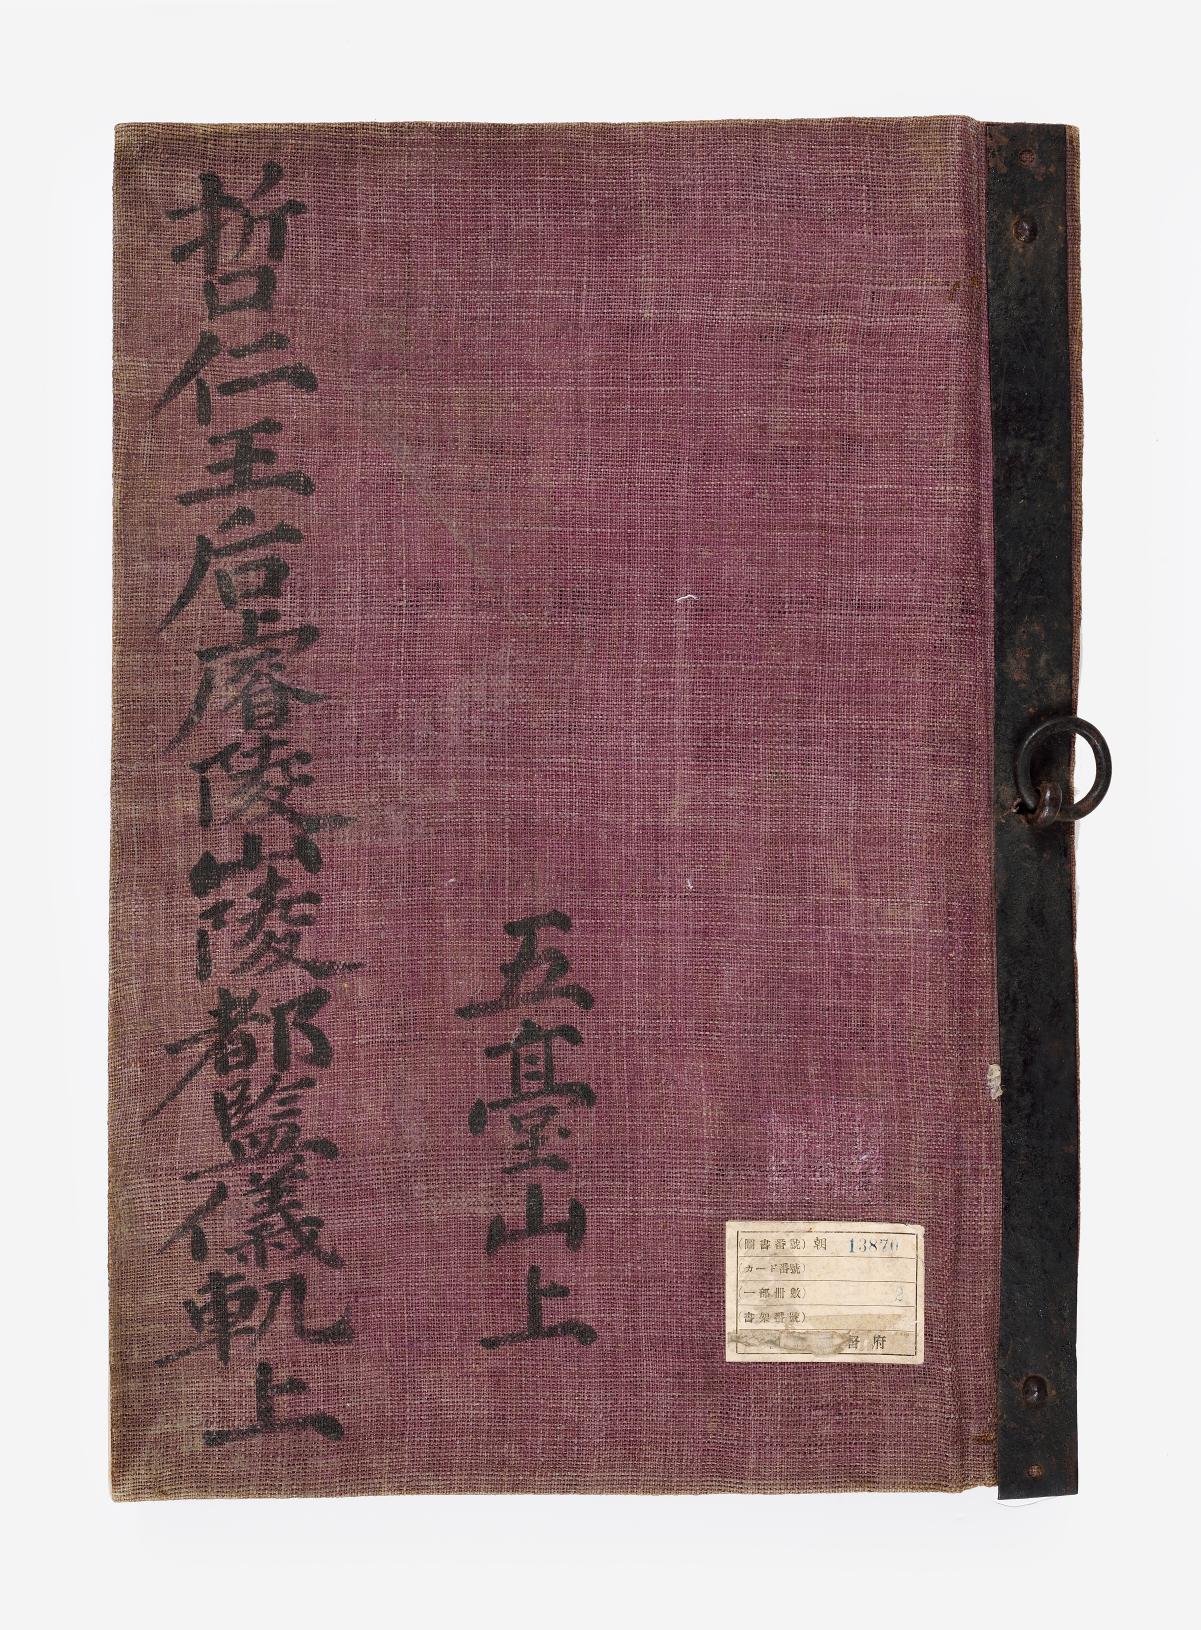 哲仁王后睿陵山陵都監儀軌上
五臺山上
(圖書番號) 朝 13870
(カード番號)
(一部冊數) 2
(書架番號)
府